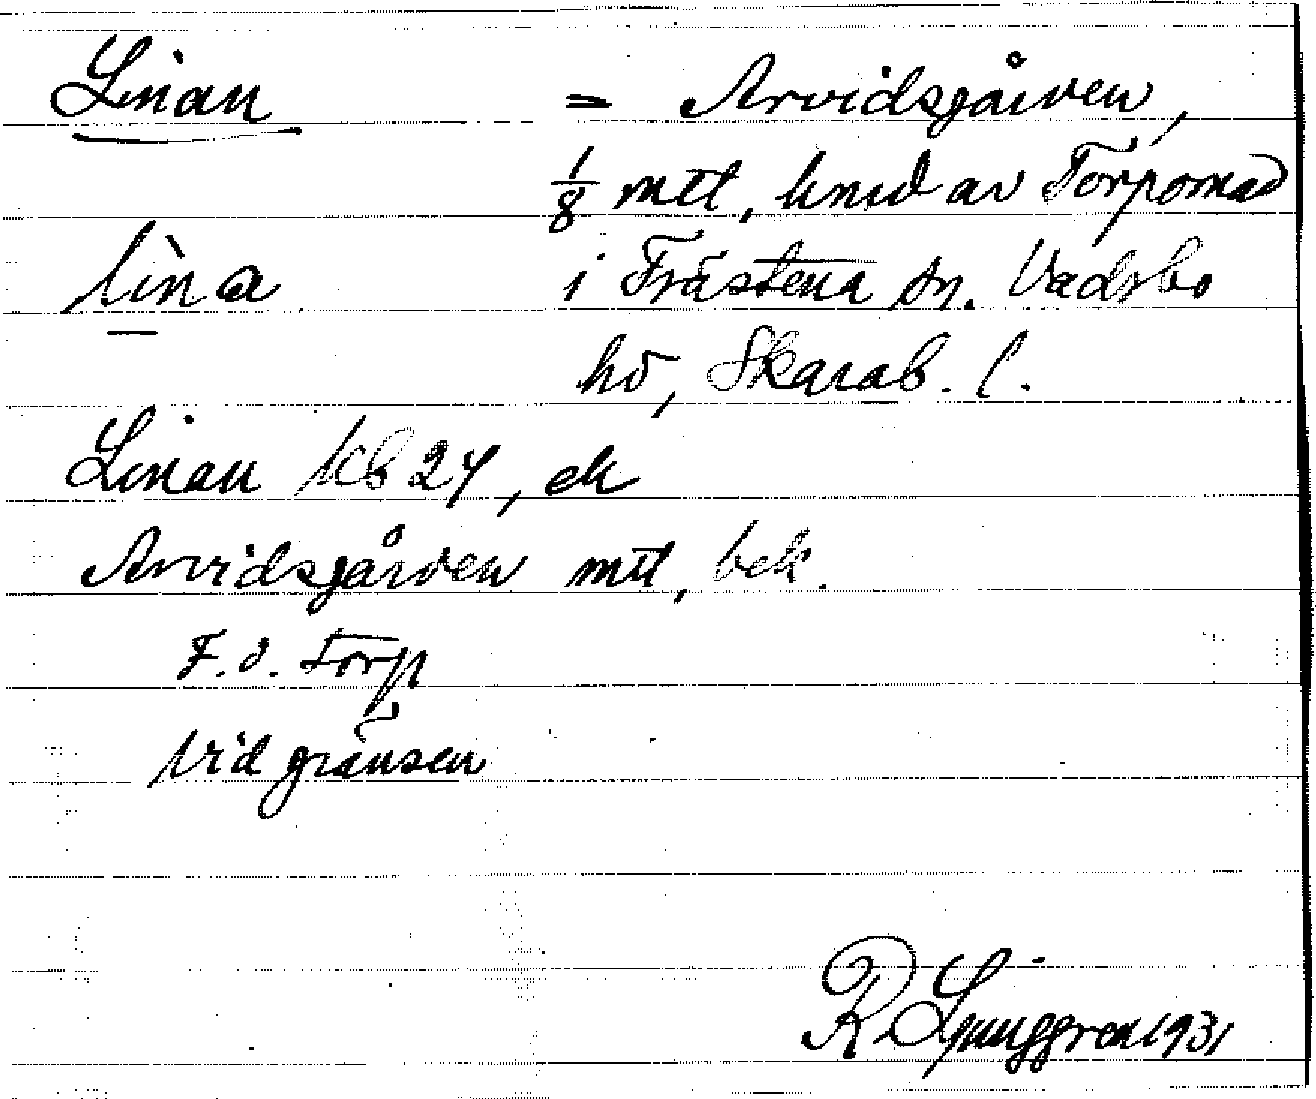 Linan = Arvidsgården,
1/8 mtl, under av Torpomad
lìna i Fräst̄ena sn. Vadsbo
hd, Skarab. l.
Linan kb 24, ek
Arvidsgården mtl, bek.
F.d. Torp
Vid gränsen
R. Ljunggren 1931